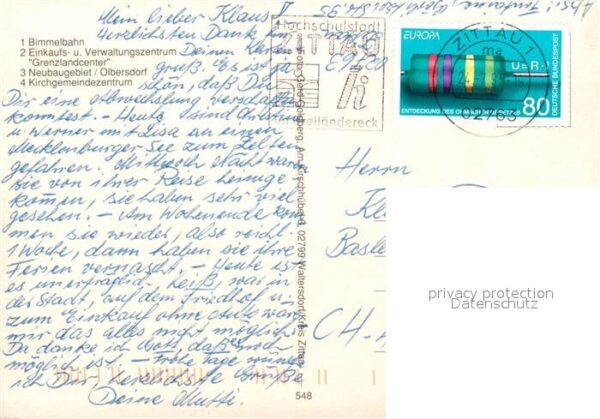 Mein lieber Klaus!
Herzlichsten Dank für
Deinen lieben
gruß. Es ist ja
schön, daß Du
Dir eine Abwechslung verschaffen
konntest. - Heute sind
u. Werner mit Lisa an einen
Mecklenburger See zum Zelten
gefahren. Mittwoch Nacht waren
sie von ihrer Reise heimge-
kommen, sie haben sehr viel
gesehen. - Am Wochenende kom
men sie wieder, also reicht
1 Woche, dann haben sie ihre
Ferien vernascht. - Heute ist
es unerträglich heiß, war in
der Stadt, auf dem Friedhof u.
zum Einkauf ohne Auto wäre
mir das alles nicht möglich.
Da danke ich Gott, daß noch
möglich ist. - Frohe Tage wünscht
ich Dir, herzlichste Grüße
Deine Mutti.
1 Bimmelbahn
2 Einkaufs- u. Verwaltungszentrum
"Grenzlandcenter"
3 Neubaugebiet / Olbersdorf
4 Kirchgemeindezentrum
Hochschulstadt
ZITTAU
im Dreiländereck
ZITTAU 1
ma
02763
EUROPA
U=R·I
ENTDECKUNG DES OHMSCHEN GESETZES
80
DEUTSCHE BUNDESPOST
Foto: Gerd Goldberg, Am Kirschhübel 9, 02799 Waltersdorf/Kreis Zittau
548
Basle
CH-
privacy protection
Datenschutz